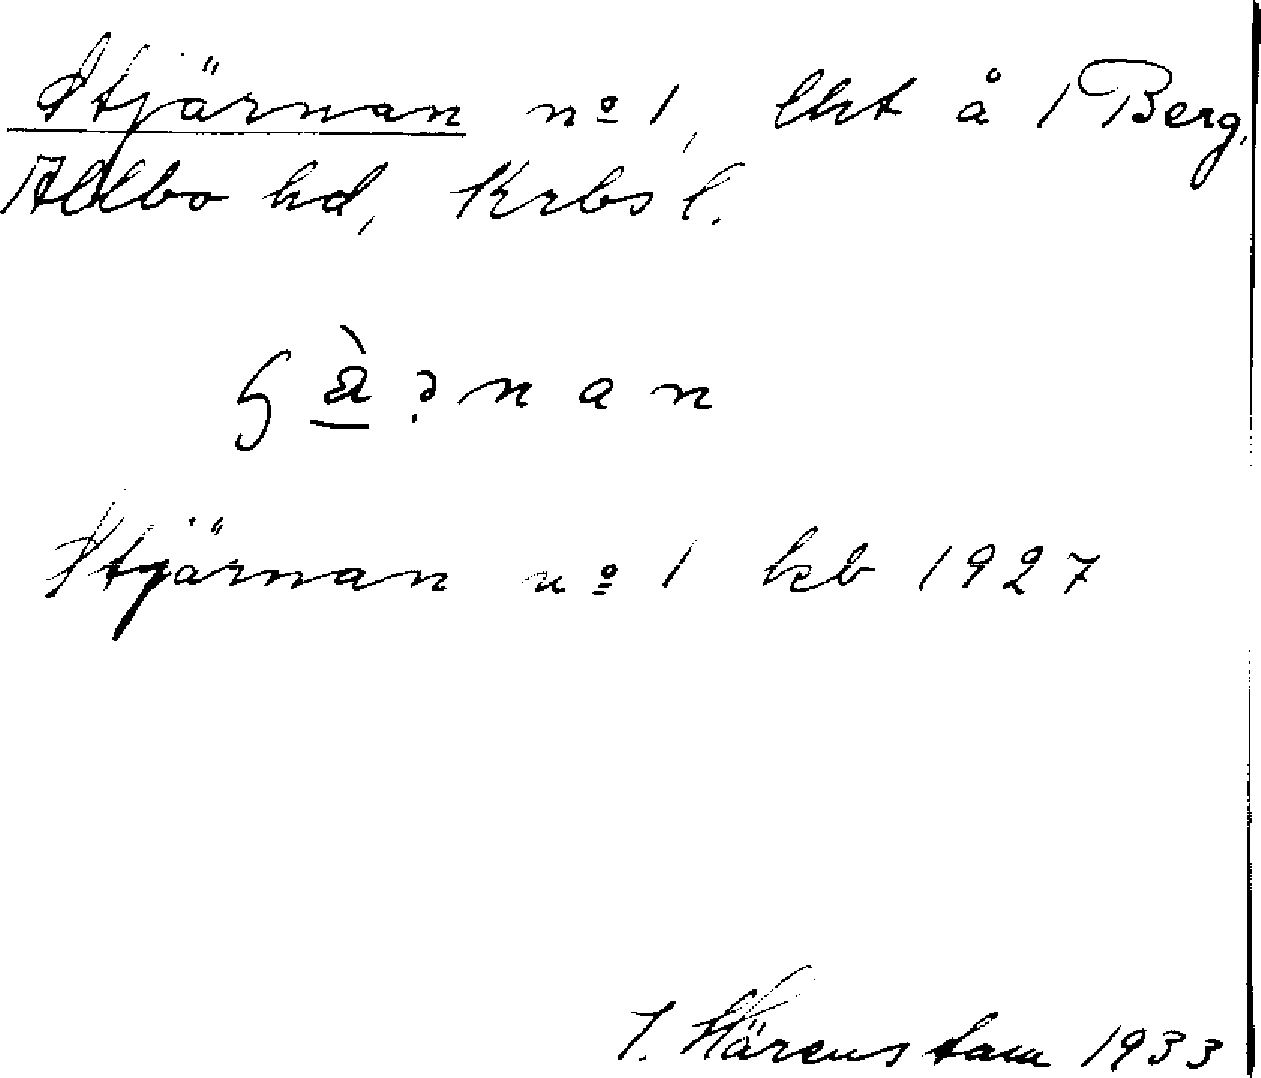 Stjärnan nº 1, lht å 1 Berg,
Allbo hd, Krbs l.
Stjärnan nº 1 kb 1927
J. Härenstam 1933